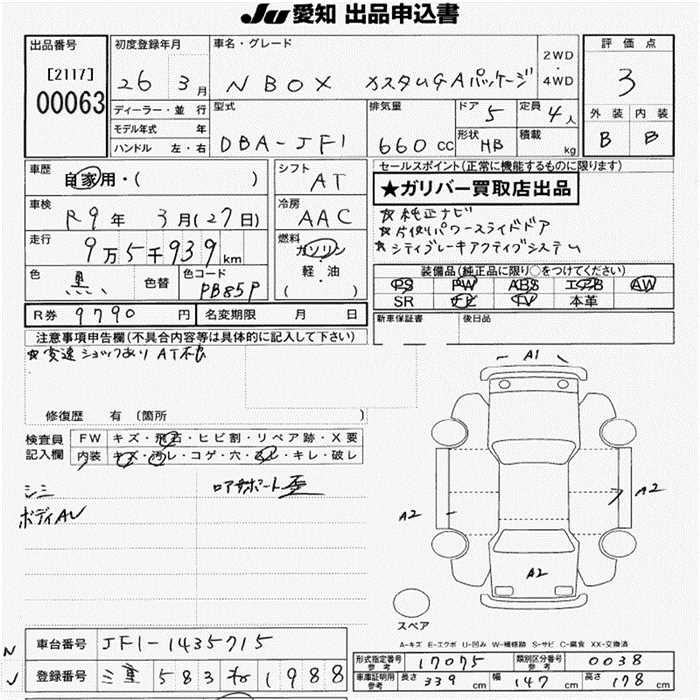 JU 愛知 出品申込書
出品番号
[2117]
00063
初度登録年月
26 3月
車名・グレード
N BOX カスタムGAパッケージ
2WD・4WD
評価点
3
外装 内装
B B
ディーラー・並行
モデル年式 年
ハンドル 左・右
型式
DBA-JF1
排気量
660cc
ドア 5
定員 4人
形状 HB
積載 kg
車歴
自家用・( )
車検
R9年 3月(27日)
走行
9万5千939km
色 黒
色替
色コード
PB85P
シフト
AT
冷房
AAC
燃料
ガソリン
軽・油
( )
セールスポイント(正常に機能するものに限ります)
★ガリバー買取店出品
☆純正ナビ
☆片側パワースライドドア
☆シティブレーキアクティブシステム
装備品(純正品に限り○をつけてください)
PS PW ABS エアB AW
SR ナビ TV 本革
R券 9790円
名変期限 月 日
新車保証書
後日品
注意事項申告欄(不具合内容等は具体的に記入して下さい)
☆変速ショックあり AT不良
修復歴 有 〔箇所 〕
検査員記入欄
FW キズ・飛石・ヒビ割・リペア跡・X要
内装 キズ・汚レ・コゲ・穴・スレ・キレ・破レ
シミ
ボディAU
ロアサポート歪
A1
A2
A2
A2
スペア
A-キズ E-エクボ U-凹み W-補修跡 S-サビ C-腐食 XX-交換済
N
J
車台番号 JF1-1435715
登録番号 三重 583 ね 1988
形式指定番号 参考 17075
類別区分番号 参考 0038
車庫証明用 参考 長さ 339cm 幅 147cm 高さ 178cm